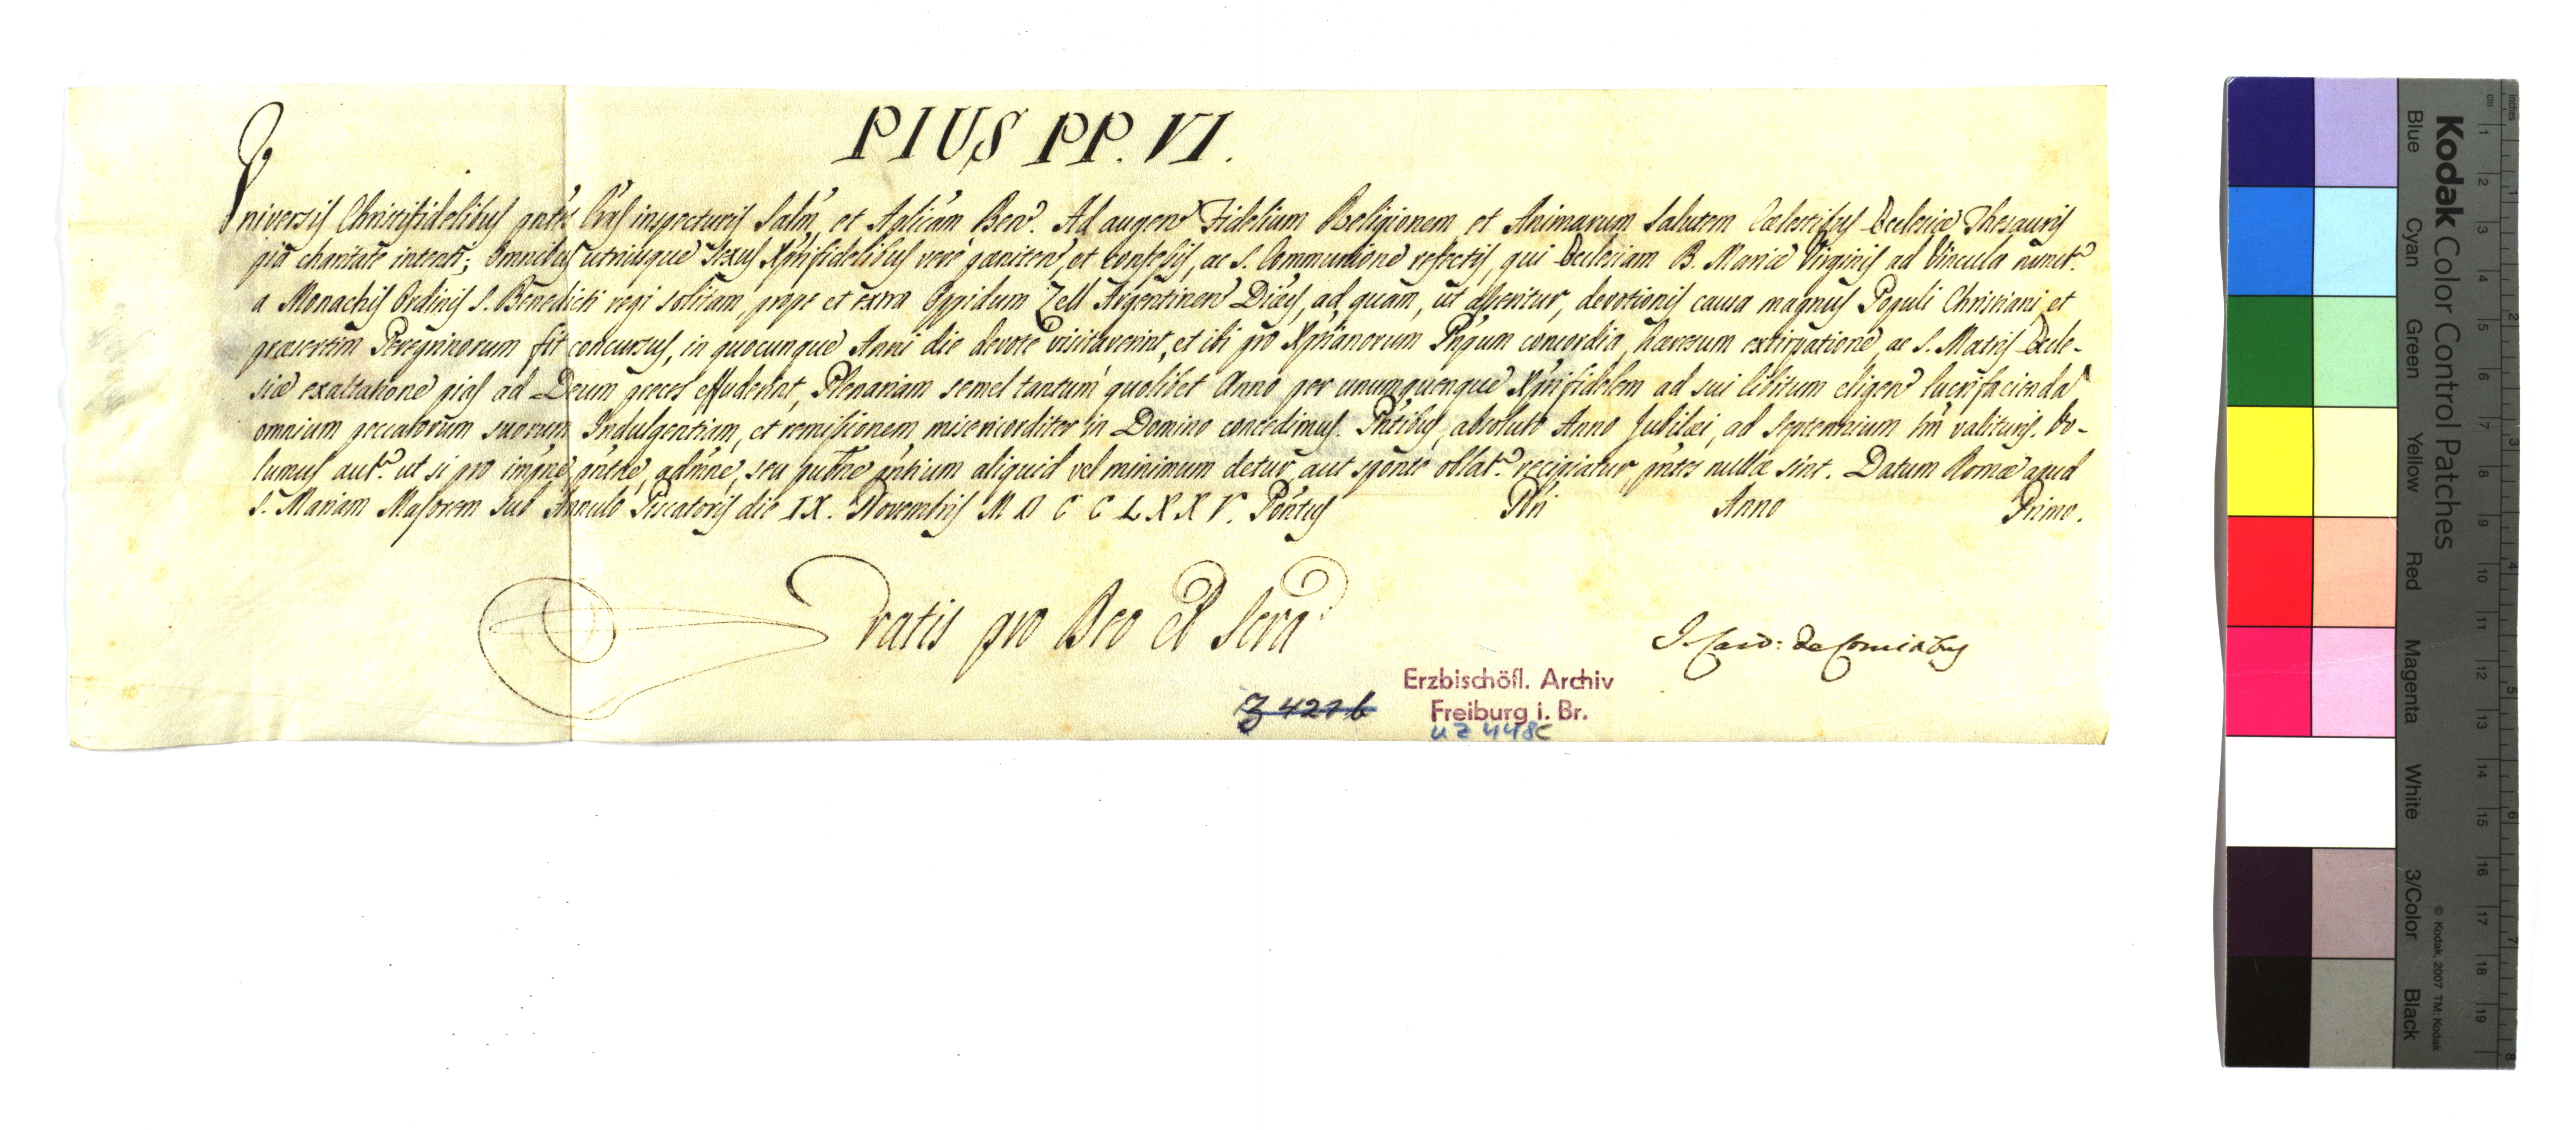 PIUS PP. VI.
Universis Christifidelibus pñtes Lrãs inspecturis Salm̃, et Aplicam̃ Ben̄. Ad augen̄ Fidelium Religionem, et Animarum Salutem Cælestibus Ecclesiæ Thesauris
pia charitate intenti; Omnibus utriusque Sexus Xp̃ifidelibus vere pœniten̄, et confessis, ac S. Communione refectis, qui Ecclesiam B. Mariæ Virginis ad Vincula nuncẽ.
a Monachis Ordinis S. Benedicti regi solitam, prope et extra Oppidum Zell Argentinen̄ Diœcis, ad quam, ut asseritur, devotionis causa magnus Populi Christiani et
præsertim Peregrinorum fit concursus, in quocunque Anni die devote visitaverint, et ibi pro Xp̃ianorum Pñpum concordia, hæresum extirpatione, ac S. Matris Eccle-
siæ exaltatione pias ad Deum preces effuderint, Plenariam semel tantum quolibet Anno per unumquemque Xp̃ifidelem ad sui libitum eligen̄ lucrifacienda
omnium peccatorum suorum Indulgentiam, et remissionem misericorditer in Domino concedimus. Pñtibus, absoluto Anno Jubilæi, ad Septennium tm̃ valituris. Vo-
lumus autẽ. ut si pro impñe pñtũe, admñe, seu publñe pñtium aliquid vel minimum detur, aut sponte oblatẽ. recipiatur pñtes nullæ sint. Datum Romæ apud
S. Mariam Majorem Sub Annulo Piscatoris die IX. Novembris M D C C L X X V. Pontus Nr̃i Anno Primo.
Gratis pro Deo et Scra
J. Card: de Comitibus
Erzbischöfl. Archiv
Freiburg i. Br.
Z 421 b
UZ 448c
Kodak Color Control Patches
Blue Cyan Green Yellow Red Magenta White 3/Color Black
© Kodak, 2007 TM: Kodak
cm 1 2 3 4 5 6 7 8 9 10 11 12 13 14 15 16 17 18 19
inches 1 2 3 4 5 6 7 8